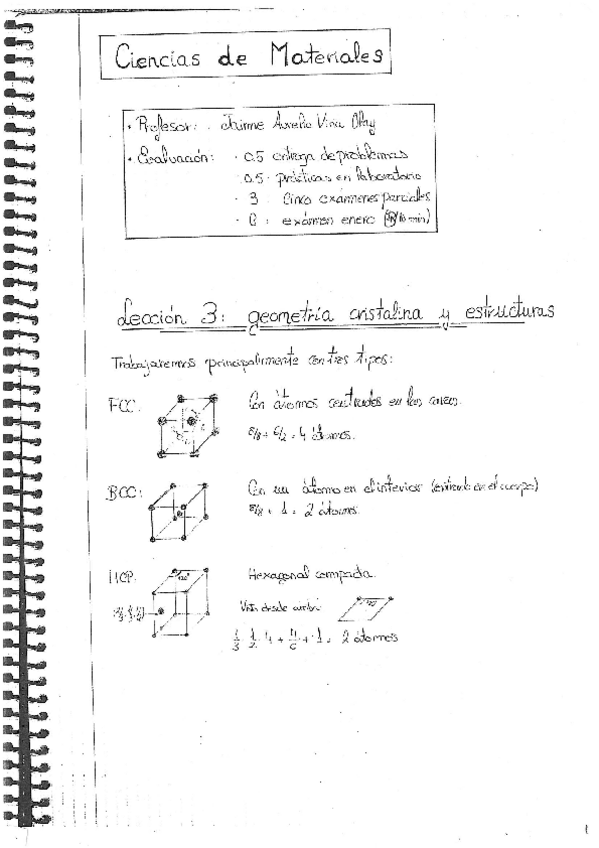 Ciencias de Materiales
• Profesor: Jaime Aurelio Viña Olay
• Evaluación: • 0.5 entrega de problemas
0.5 prácticas en laboratorio
• 3 : Cinco exámenes parciales
• 6 : exámen enero
Lección 3: geometría cristalina y estructuras
Trabajaremos principalmente con tres tipos:
FCC: Con átomos centrados en las caras.
8/8 + 6/2 = 4 átomos.
BCC: Con un átomo en el interior (centrado en el cuerpo)
8/8 + 1 = 2 átomos
HCP: Hexagonal compacta.
Vista desde arriba:
1/3 · 1/2 · 4 + 4/6 + 1 = 2 átomos
1